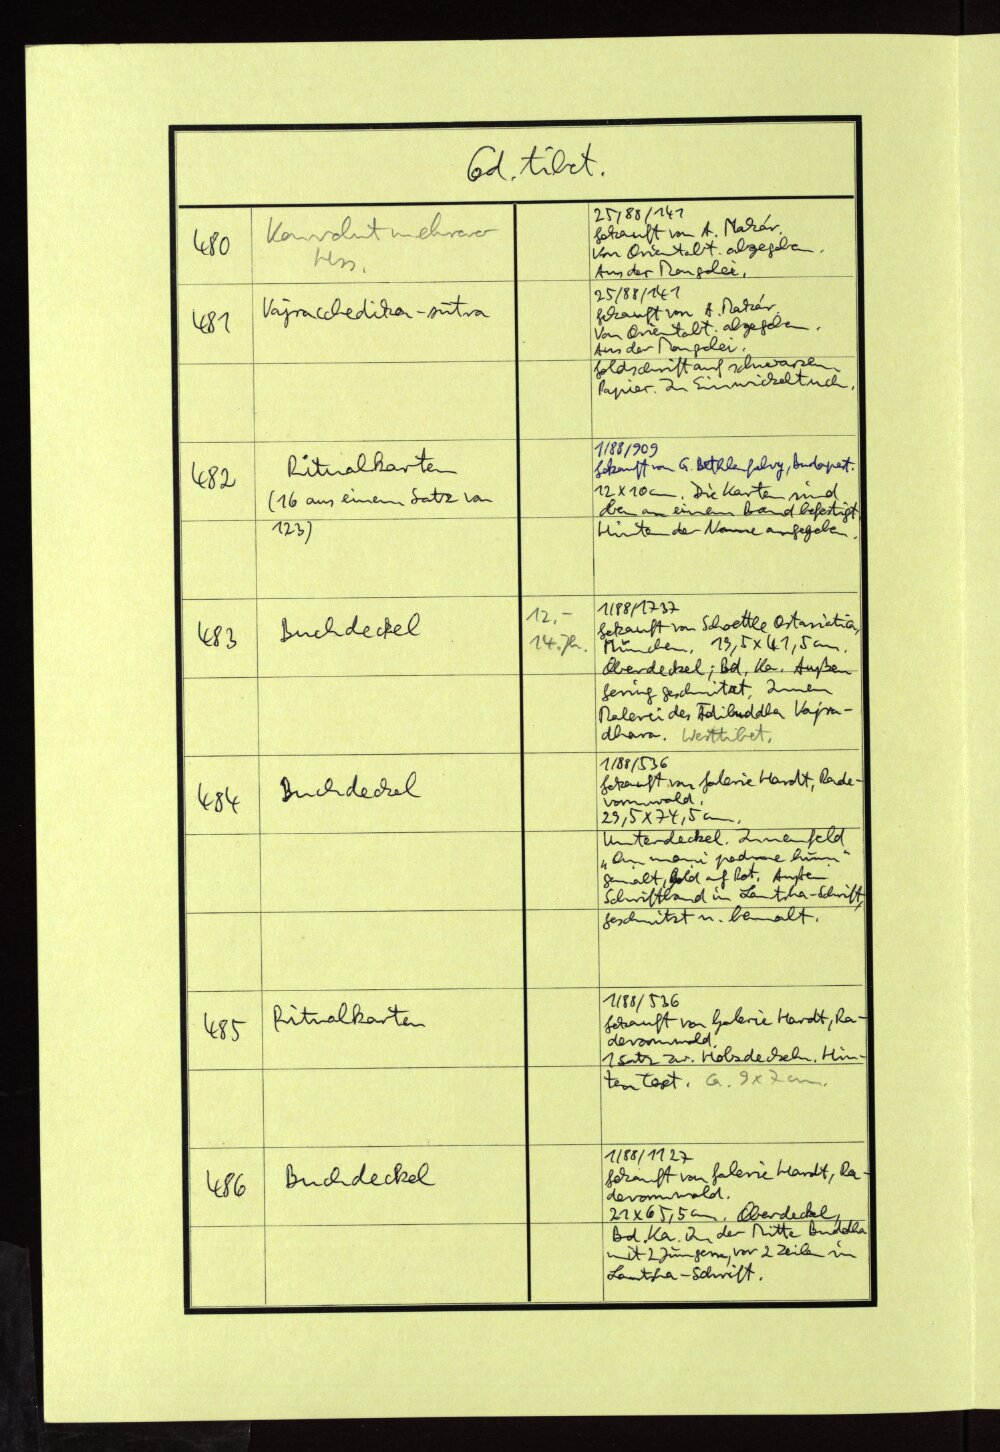 Cod. tibet.
480
Konvolut mehrerer
Hss.
25/88/141
Gekauft von A. Makár.
Von Orientabt. abgegeben.
Aus der Mongolei.
481
Vajracchedika-sutra
25/88/141
Gekauft von A. Makár.
Von Orientabt. abgegeben.
Aus der Mongolei.
Goldschrift auf schwarzem
Papier. In Einwickeltuch.
482
Ritualkarten
(16 aus einem Satz von
123)
1/88/909
Gekauft von G. Bethlenfalvy, Budapest.
12 x 10 cm. Die Karten sind
oben an einem Band befestigt.
Hinten der Name angegeben.
483
Buchdeckel
12.-
14. Jh.
1/88/1737
Gekauft von Schoettle Ostasiatica,
München. 19,5 x 41,5 cm.
Oberdeckel; Bd, Ka. Außen
gering geschnitzt, Innen
Malerei des Adibuddha Vajra-
dhara. Westtibet.
484
Buchdeckel
1/88/536
Gekauft von Galerie Hardt, Rade-
vormwald.
29,5 x 74,5 cm.
Unterdeckel. Innenfeld
„Om mani padme hum"
gemalt, Gold auf Rot. Außen
Schriftband in Lantsha-Schrift,
geschnitzt u. bemalt.
485
Ritualkarten
1/88/536
Gekauft von Galerie Hardt, Ra-
devormwald.
1 Satz zw. Holzdeckeln. Hin-
ten Text. Ca. 9 x 7 cm.
486
Buchdeckel
1/88/1127
Gekauft von Galerie Hardt, Ra-
devormwald.
21 x 65,5 cm. Oberdeckel,
Bd. Ka. In der Mitte Buddha
mit 2 Jüngern, vor 2 Zeilen in
Lantsha-Schrift.